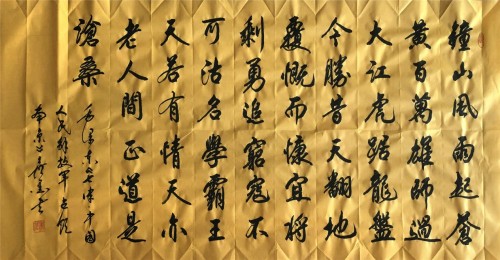 鐘山風雨起蒼
黃百萬雄師過
大江虎踞龍盤
今勝昔天翻地
覆慨而慷宜將
剩勇追窮寇不
可沽名學霸王
天若有情天亦
老人間正道是
滄桑
毛澤東七律中國
人民解放軍占領
南京